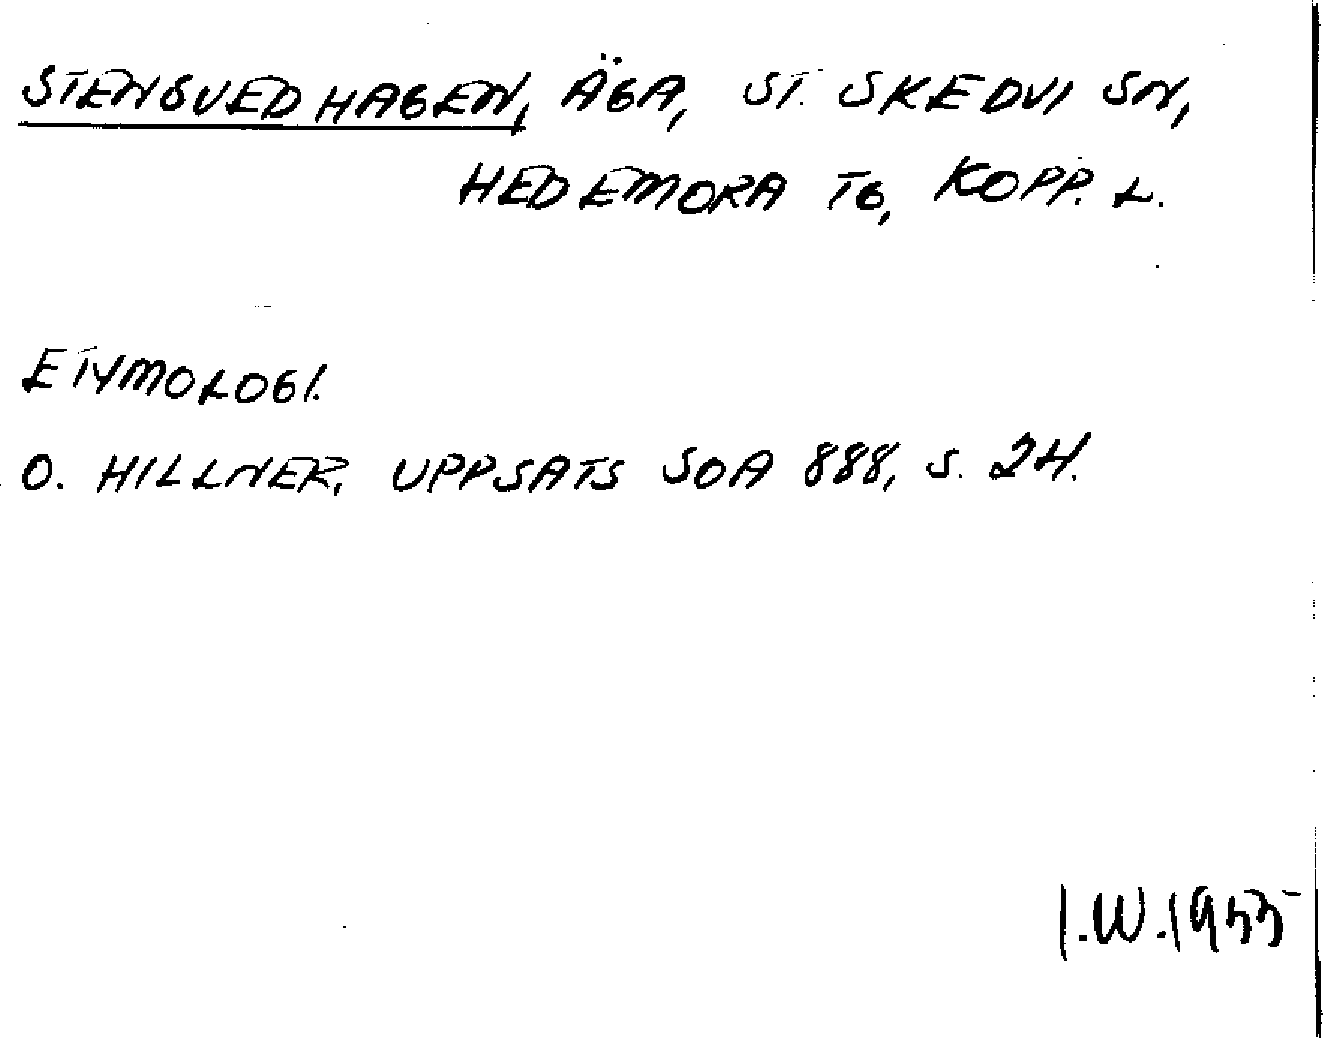 STENSVEDHAGEN, ÄGA, ST. SKEDVI SN,
HEDEMORA TG, KOPP. L.
ETYMOLOGI.
O. HILLNER, UPPSATS SOA 888, S. 24.
I.W.1955